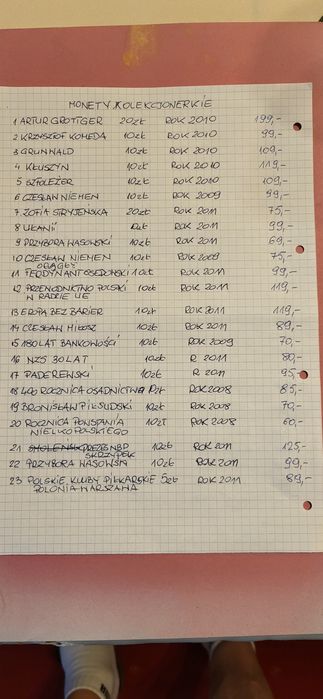 MONETY KOLEKCJONERKIE
1 ARTUR GROTTGER 20zł ROK 2010 199,-
2 KRZYSZTOF KOMEDA 10zł ROK 2010 99,-
3 GRUNWALD 10zł ROK 2010 109,-
4 KŁUSZYN 10zł ROK 2010 119,-
5 SZFOLEŻER 10zł ROK 2010 109,-
6 CZESŁAW NIEMEN 10zł ROK 2009 99,-
7 ZOFIA STRYJEŃSKA 20zł ROK 2011 75,-
8 UŁANII ROK 2011 99,-
9 PRZYBORA WASOWSKI 10zł ROK 2011 69,-
10 CZESŁAW NIEMEN 10zł ROK 2009 75,-
OKRĄGŁY
11 FERDYNANT OSSENDOWSKI 10zł ROK 2011 99,-
12 PRZEWODNICTWO POLSKI 10zł ROK 2011 119,-
W RADZIE UE
13 EROPA BEZ BARIER 10zł ROK 2011 119,-
14 CZESŁAW MIŁOSZ 10zł ROK 2011 89,-
15 180LAT BANKOWOŚCI 10zł ROK 2009 70,-
16 NZS 30 LAT 10zł R 2011 80,-
17 PADEREWSKI 10zł R 2011 95,-
18 400 ROCZNICA OSADNICTWA ROK 2008 85,-
19 BRONISŁAW PIŁSUDSKI 10zł ROK 2008 70,-
20 ROCZNICA POWSTANIA 10zł ROK 2008 60,-
WIELKOPOLSKIEGO
21 SMOLEŃSK PREZES NBP 10zł ROK 2011 125,-
SKRZYPEK
22 PRZYBORA WASOWSKI 10zł ROK 2011 99,-
23 POLSKIE KLUBY PIŁKARSKIE 5zł ROK 2011 89,-
POLONIA WARSZAWA